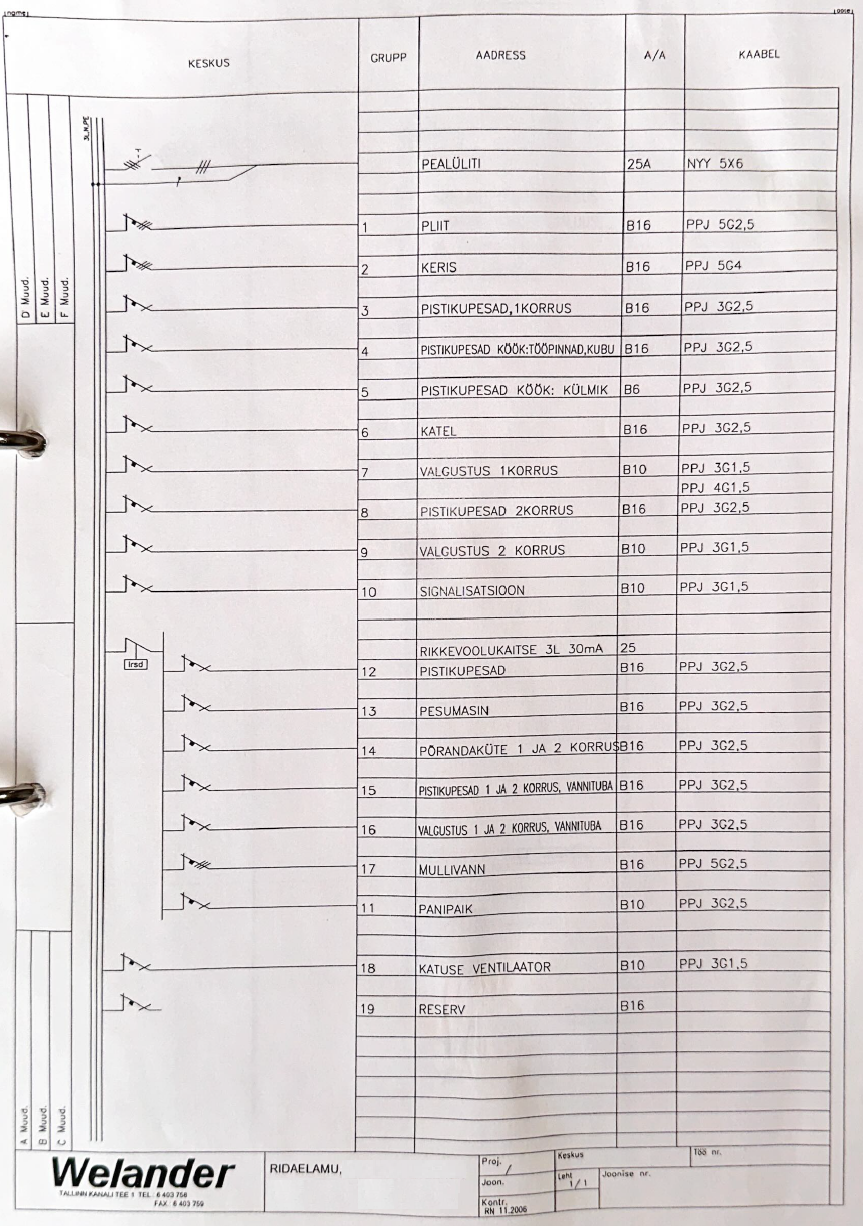 [name]
[date]
KESKUS GRUPP AADRESS A/A KAABEL
3L,N,PE
PEALÜLITI 25A NYY 5X6
1 PLIIT B16 PPJ 5G2,5
2 KERIS B16 PPJ 5G4
3 PISTIKUPESAD,1KORRUS B16 PPJ 3G2,5
4 PISTIKUPESAD KÖÖK:TÖÖPINNAD,KUBU B16 PPJ 3G2,5
5 PISTIKUPESAD KÖÖK: KÜLMIK B6 PPJ 3G2,5
6 KATEL B16 PPJ 3G2,5
7 VALGUSTUS 1KORRUS B10 PPJ 3G1,5
PPJ 4G1,5
8 PISTIKUPESAD 2KORRUS B16 PPJ 3G2,5
9 VALGUSTUS 2 KORRUS B10 PPJ 3G1,5
10 SIGNALISATSIOON B10 PPJ 3G1,5
RIKKEVOOLUKAITSE 3L 30mA 25
Irsd
12 PISTIKUPESAD B16 PPJ 3G2,5
13 PESUMASIN B16 PPJ 3G2,5
14 PÕRANDAKÜTE 1 JA 2 KORRUS B16 PPJ 3G2,5
15 PISTIKUPESAD 1 JA 2 KORRUS, VANNITUBA B16 PPJ 3G2,5
16 VALGUSTUS 1 JA 2 KORRUS, VANNITUBA B16 PPJ 3G2,5
17 MULLIVANN B16 PPJ 5G2,5
11 PANIPAIK B10 PPJ 3G2,5
18 KATUSE VENTILAATOR B10 PPJ 3G1,5
19 RESERV B16
D Muud.
E Muud.
F Muud.
A Muud.
B Muud.
C Muud.
Welander
TALLINN KANALI TEE 1 TEL : 6 403 758
FAX : 6 403 759
RIDAELAMU,
Proj. /
Joon.
Kontr.
RN 11.2006
Keskus
Töö nr.
Leht
1/1
Joonise nr.